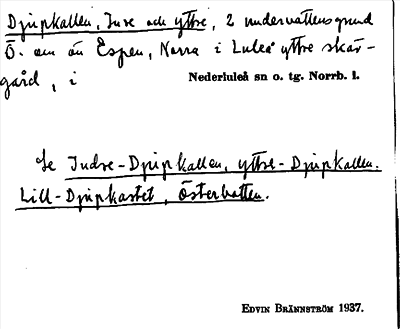 Djupkallen, Inre och yttre, 2 undervattensgrund
Ö. om ön Espen, Norra i Luleå yttre skär-
gård, i Nederluleå sn o. tg. Norrb. l.
Se Indre-Djupkallen, yttre-Djupkallen.
Lill-Djupkastet, Österbotten.
EDVIN BRÄNNSTRÖM 1937.